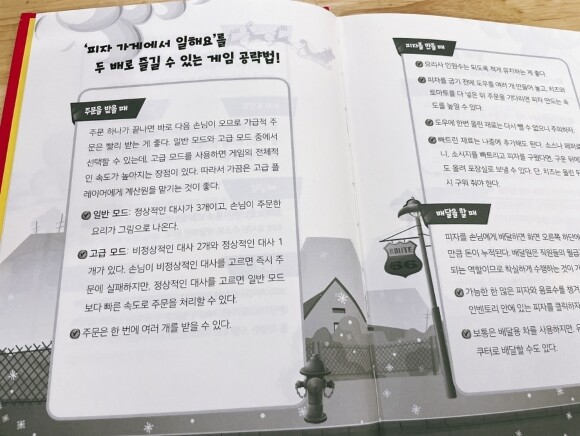 '피자 가게에서 일해요'를
두 배로 즐길 수 있는 게임 공략법!
주문을 받을 때
주문 하나가 끝나면 바로 다음 손님이 오므로 가급적 주
문은 빨리 받는 게 좋다. 일반 모드와 고급 모드 중에서
선택할 수 있는데, 고급 모드를 사용하면 게임의 전체적
인 속도가 높아지는 장점이 있다. 따라서 가끔은 고급 플
레이어에게 계산원을 맡기는 것이 좋다.
일반 모드: 정상적인 대사가 3개이고, 손님이 주문한
요리가 그림으로 나온다.
고급 모드: 비정상적인 대사 2개와 정상적인 대사 1
개가 있다. 손님이 비정상적인 대사를 고르면 즉시 주
문에 실패하지만, 정상적인 대사를 고르면 일반 모드
보다 빠른 속도로 주문을 처리할 수 있다.
주문은 한 번에 여러 개를 받을 수 있다.
피자를 만들 때
요리사 인원수는 되도록 적게 유지하는 게 좋다.
피자를 굽기 전에 도우를 여러 개 만들어 놓고, 치즈와
토마토를 다 넣은 뒤 주문을 기다리면 피자 만드는 속
도를 높일 수 있다.
도우에 한번 올린 재료는 다시 뺄 수 없으니 주의하자.
빠트린 재료는 나중에 추가해도 된다. 소스나 페퍼로
니, 소시지를 빠트리고 피자를 구웠다면, 구운 뒤에
도 올려 포장실로 보낼 수 있다. 단, 치즈는 올린 뒤
시 구워 줘야 한다.
배달을 할 때
피자를 손님에게 배달하면 화면 오른쪽 하단에
만큼 돈이 누적된다. 배달원은 직원들의 월급
되는 역할이므로 확실하게 수행하는 것이
가능한 한 많은 피자와 음료수를 챙겨
인벤토리 안에 있는 피자를 클릭하
보통은 배달용 차를 사용하지만,
쿠터로 배달할 수도 있다.
ROUTE
66